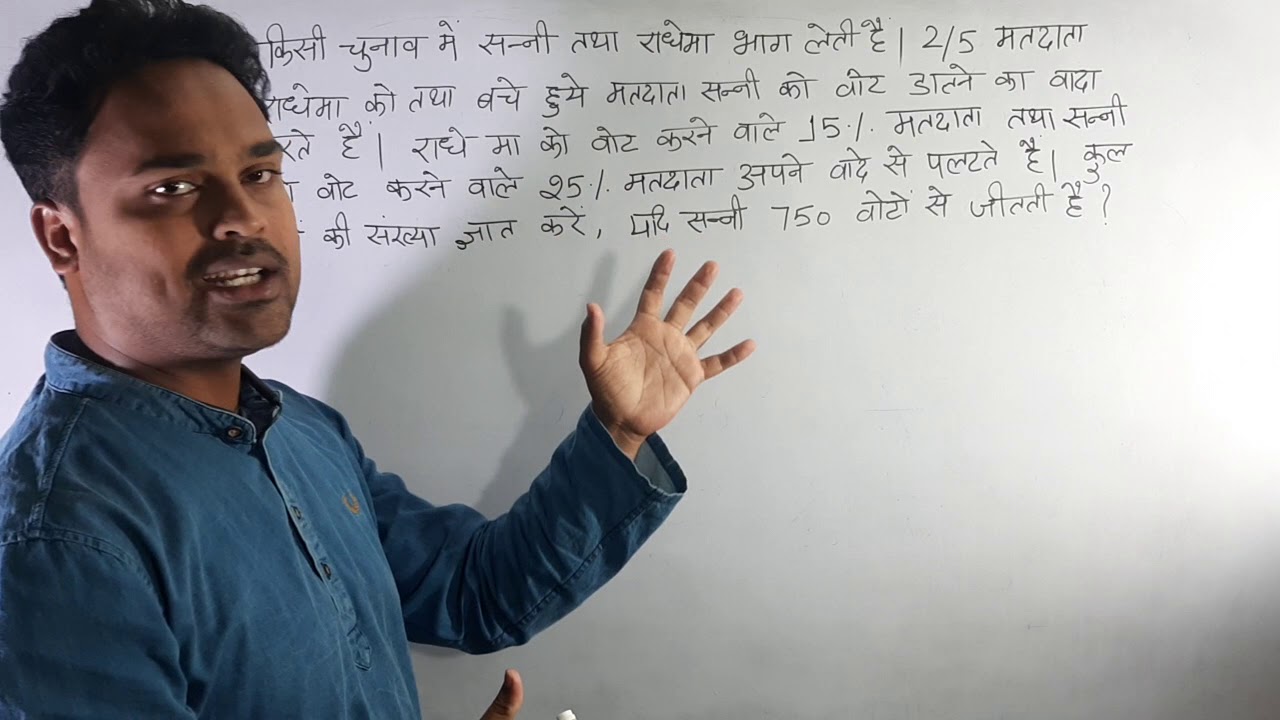 किसी चुनाव में सन्नी तथा राधेमा भाग लेती हैं। 2/5 मतदाता
राधेमा को तथा बचे हुये मतदाता सन्नी को वोट डालने का वादा
करते हैं। राधे मा को वोट करने वाले 15% मतदाता तथा सन्नी
वोट करने वाले 25% मतदाता अपने वादे से पलटते हैं। कुल
की संख्या ज्ञात करें, यदि सन्नी 750 वोटों से जीतती है?